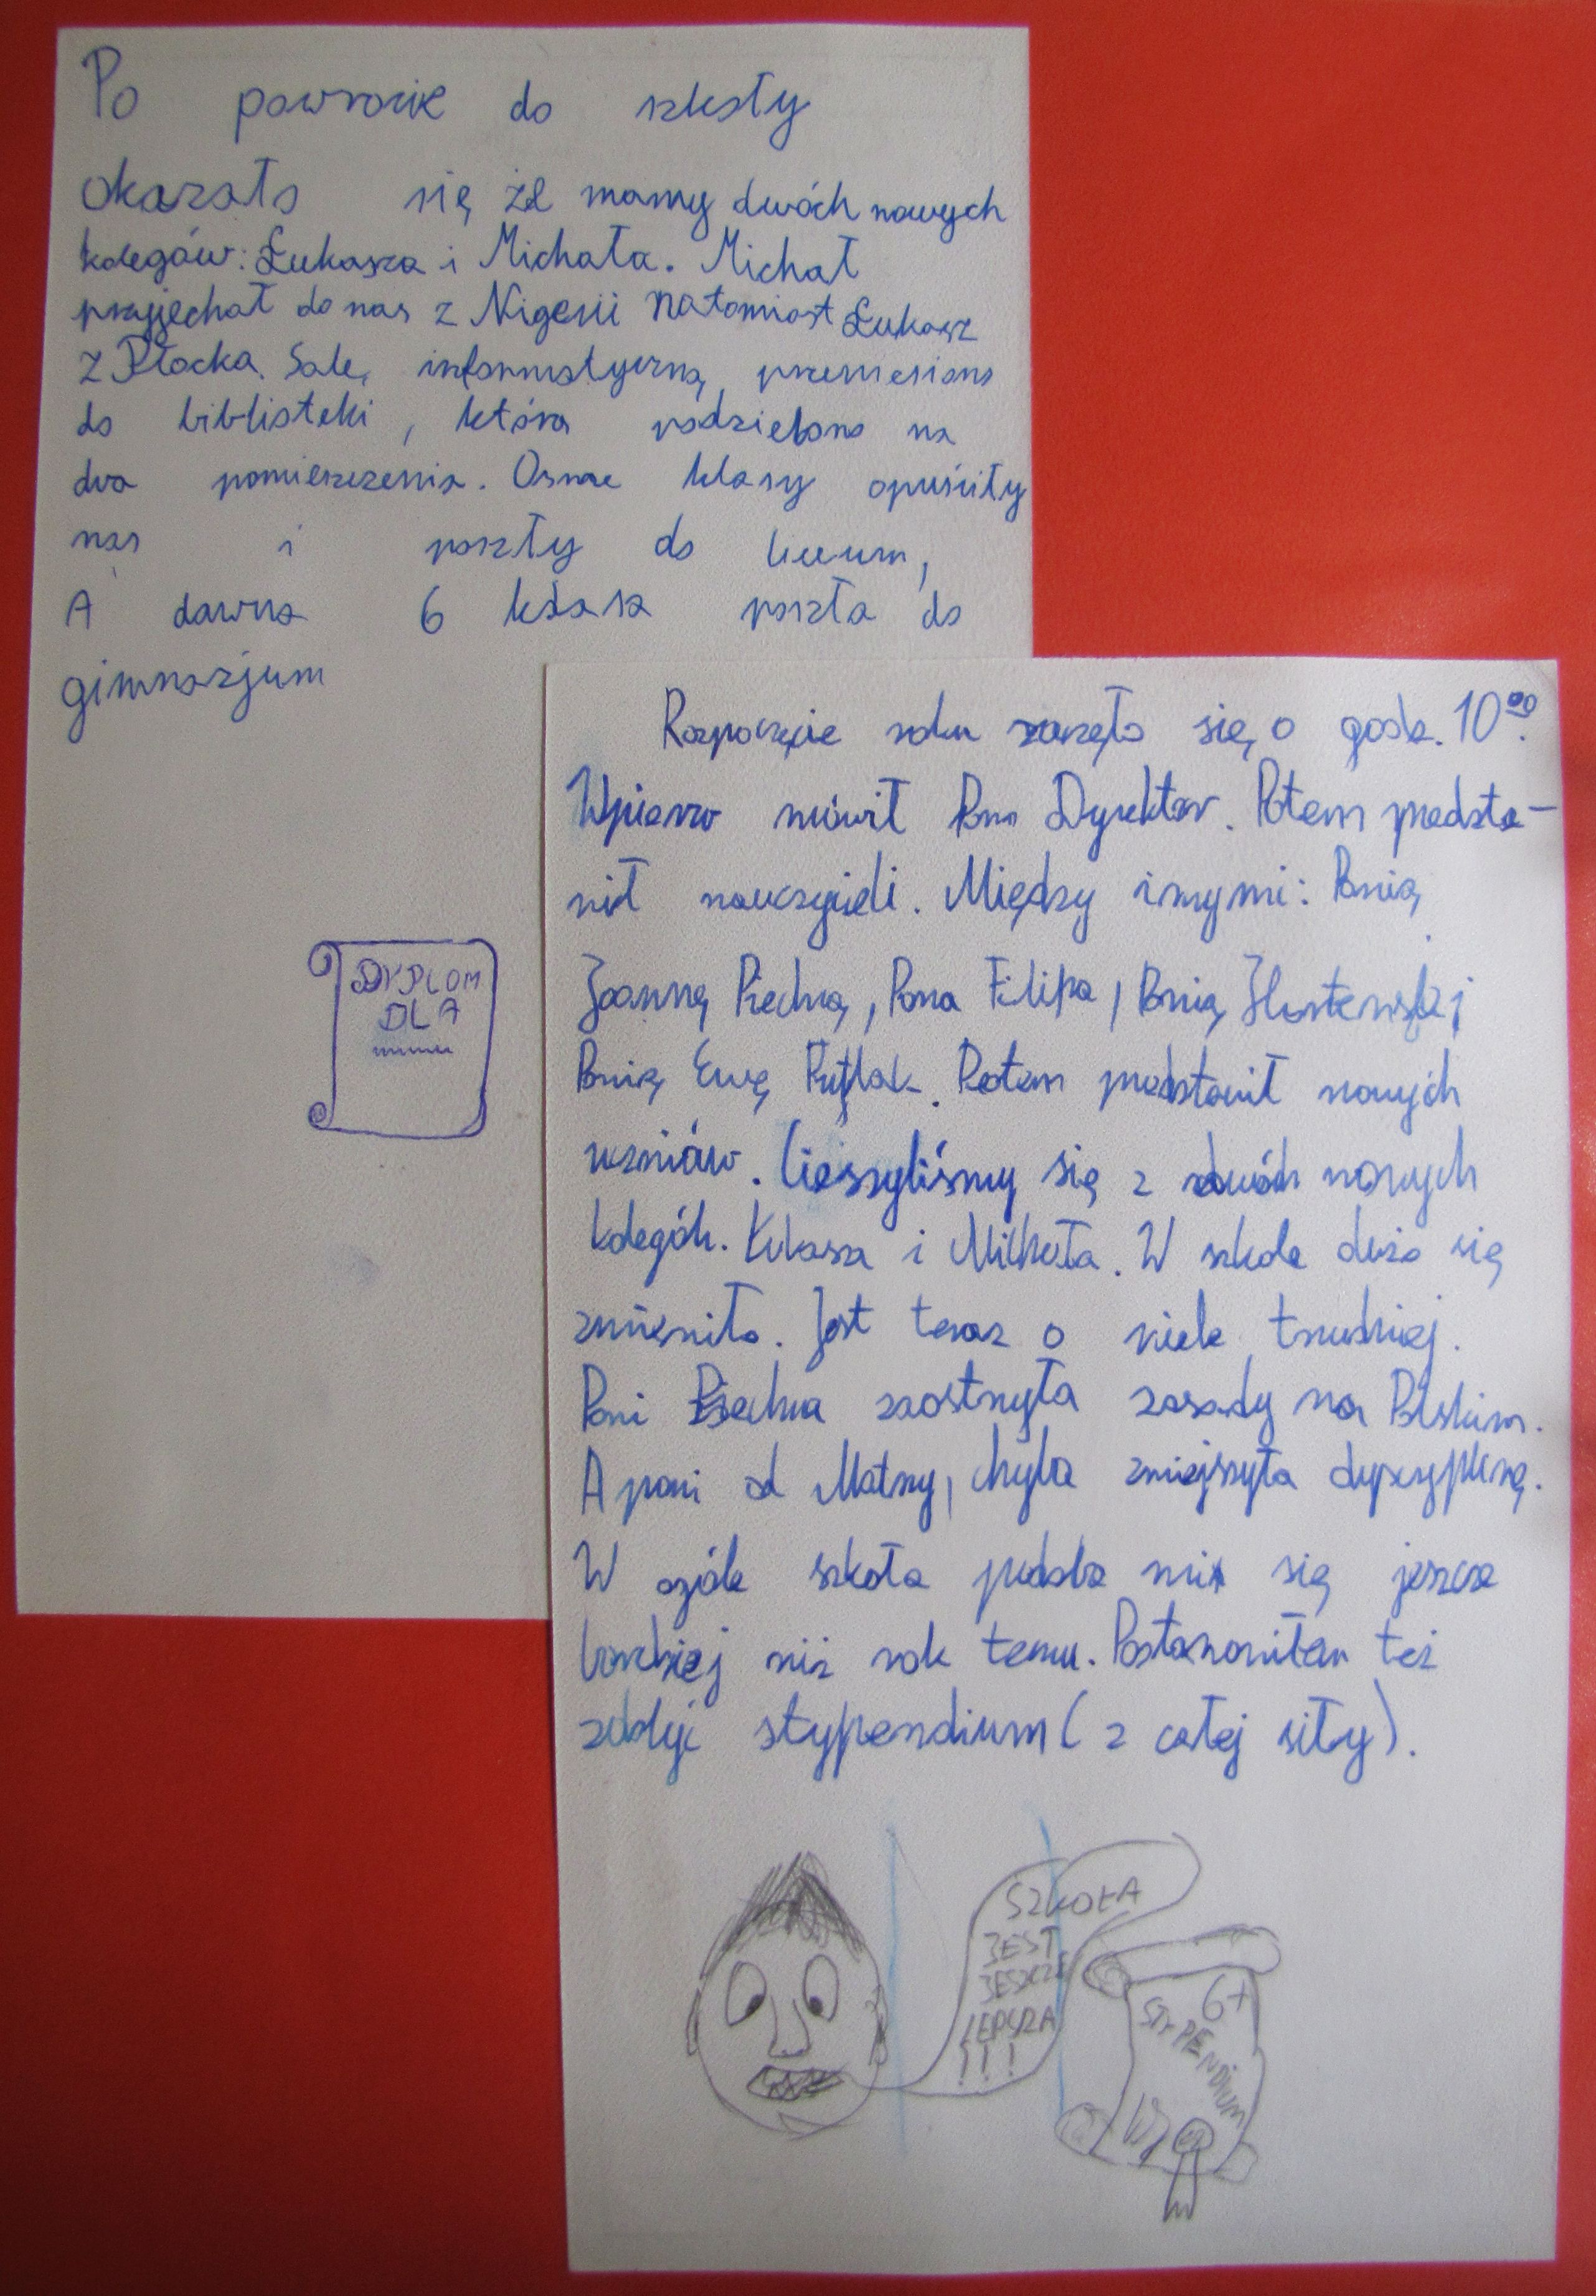 Po powrocie do szkoły
okazało się że mamy dwóch nowych
kolegów: Łukasza i Michała. Michał
przyjechał do nas z Nigerii natomiast Łukasz
z Płocka. Salę informatyczną przeniesiono
do biblioteki, którą podzielono na
dwa pomieszczenia. Ósme klasy opuściły
nas i poszły do liceum,
A dawna 6 klasa poszła do
gimnazjum
DYPLOM
DLA
Rozpoczęcie roku zaczęło się o godz. 10⁰⁰.
Wpierw mówił Pan Dyrektor. Potem predsta-
wił nauczycieli. Między innymi: Panią
Joannę Piechną, Pana Filipa, Panią
Panią Ewę Potem predstawił nowych
uczniów. Cieszyliśmy się z dwóch nowych
kolegóch. Łukasza i Michała. W szkole dużo się
zmieniło. Jest teraz o wiele trudniej.
Pani Piechna zaostrzyła zasady na Polskim.
A pani od Matmy, chyba zmiejszyła dyscyplinę.
W ogóle szkoła podoba mi się jeszcze
bardziej niż rok temu. Postanowiłem też
zdobyć stypendium (z całej siły).
SZKOŁA
JEST
JESZCZE
LEPSZA
!!!
6+
STYPENDIUM